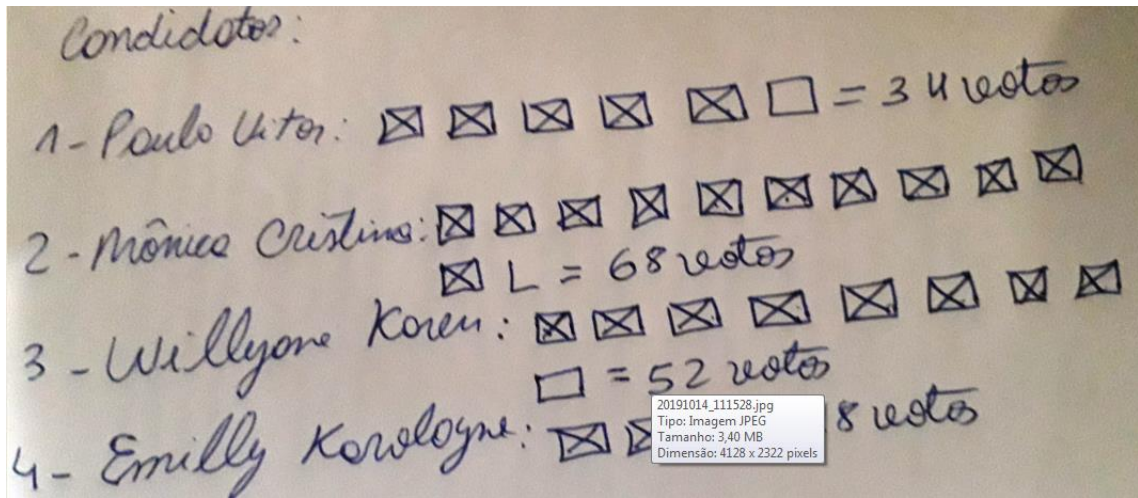 Candidatos:
1 - Paulo Vitor: = 34 votos
2 - Mônica Cristina:
L = 68 votos
3 - Willyane Karen:
= 52 votos
4 - Emilly Karolayne: 8 votos
20191014_111528.jpg
Tipo: Imagem JPEG
Tamanho: 3,40 MB
Dimensão: 4128 x 2322 pixels